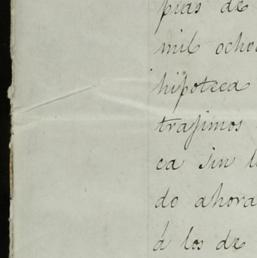 pias de
mil ocho
hipoteca
trajimos
ca sin l
do ahora
á los de